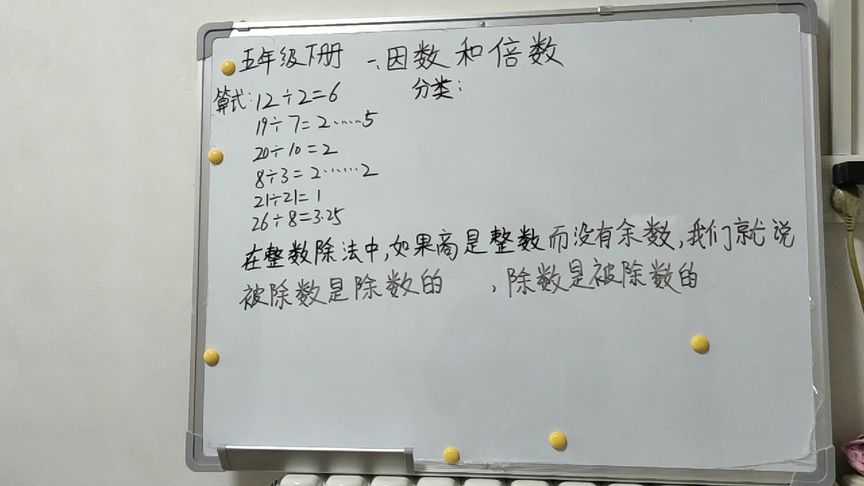 五年级下册 一、因数和倍数
算式: 12÷2=6 分类:
19÷7=2……5
20÷10=2
8÷3=2……2
21÷21=1
26÷8=3.25
在整数除法中,如果商是整数而没有余数,我们就说
被除数是除数的 ,除数是被除数的